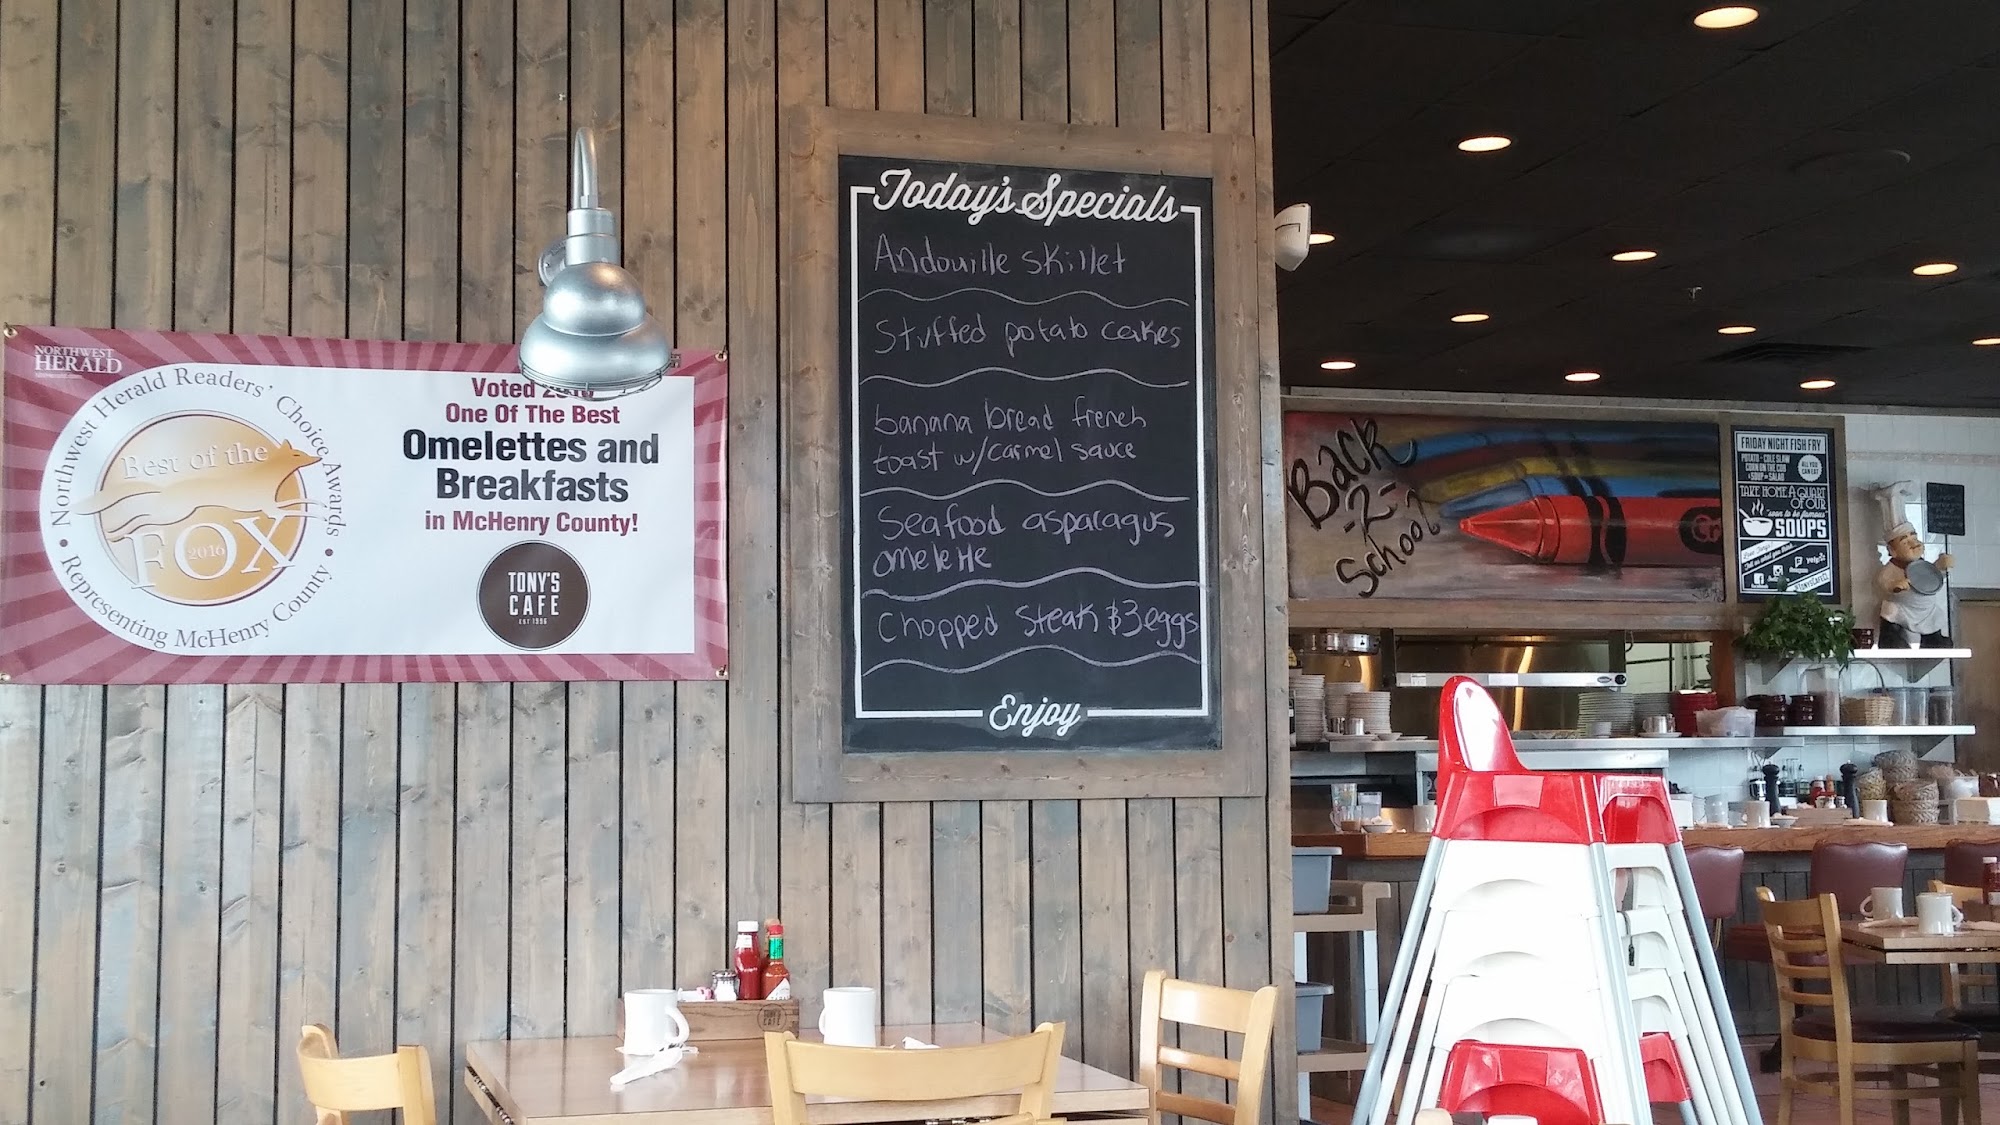 NORTHWEST
HERALD
Northwest Herald Readers' Choice Awards
Representing McHenry County
Best of the
FOX
2016
Voted
One Of The Best
Omelettes and
Breakfasts
in McHenry County!
TONY'S
CAFE
EST 1996
Today's Specials
Andouille skillet
Stuffed potato cakes
banana bread french
toast w/carmel sauce
Seafood asparagus
omelette
Chopped Steak $3eggs
Enjoy
Back
-2-
School
FRIDAY NIGHT FISH FRY
POTATO - COLE SLAW
CORN ON THE COB
+ SOUP OR SALAD
ALL YOU
CAN EAT
TAKE HOME A QUART
OF OUR
"soon to be famous"
SOUPS
CAFE